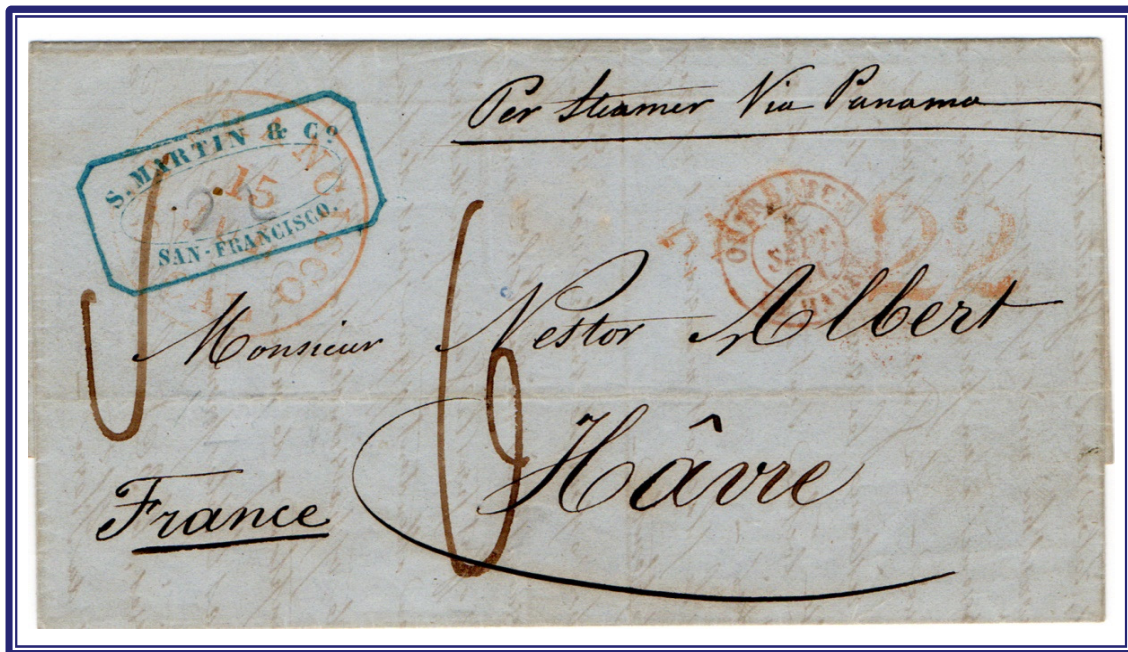 Per Steamer Via Panama
S. MARTIN & Co
SAN-FRANCISCO.
15
OUTRE-MER
22
Monsieur Nestor Albert
Hâvre
France
6